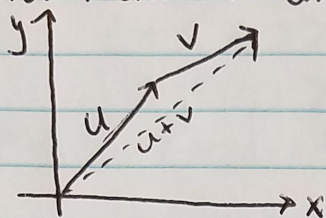 y
v
u
u+v
x